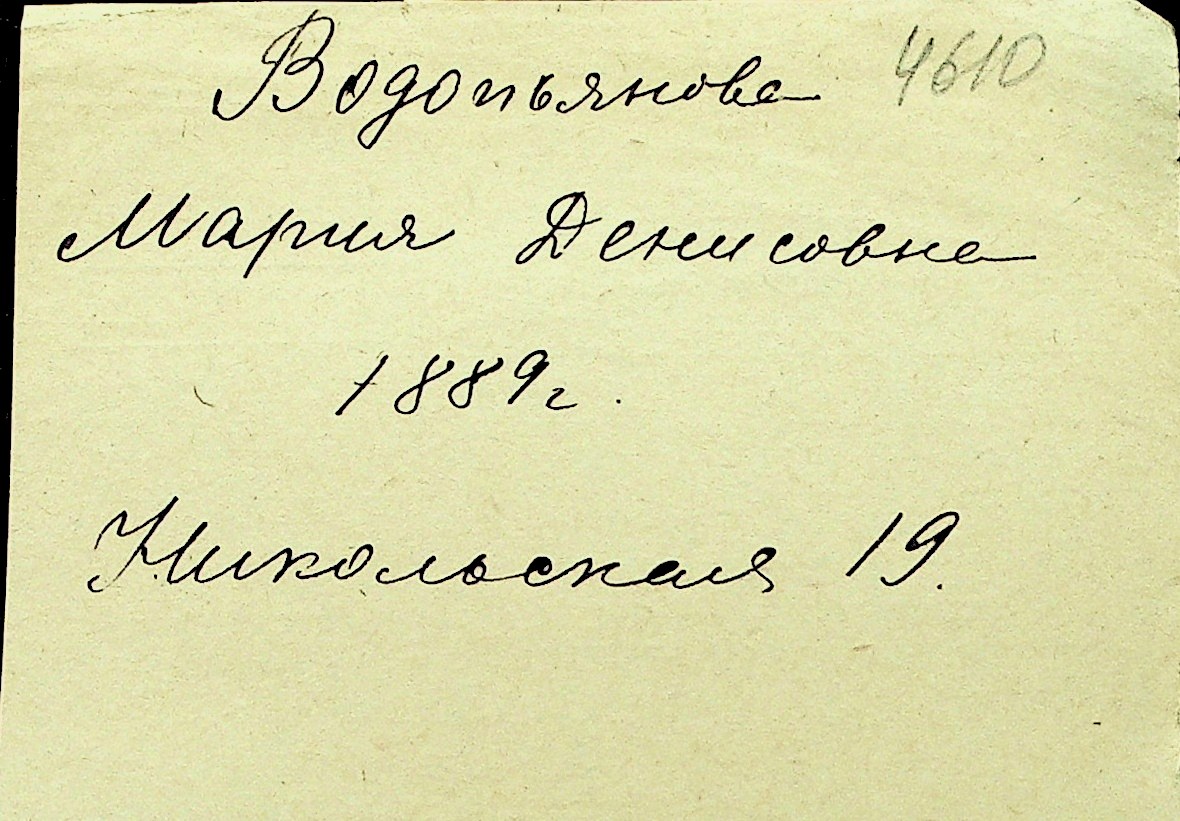 Водопьянова 4610
Мария Денисовна
1889г.
Никольская 19.